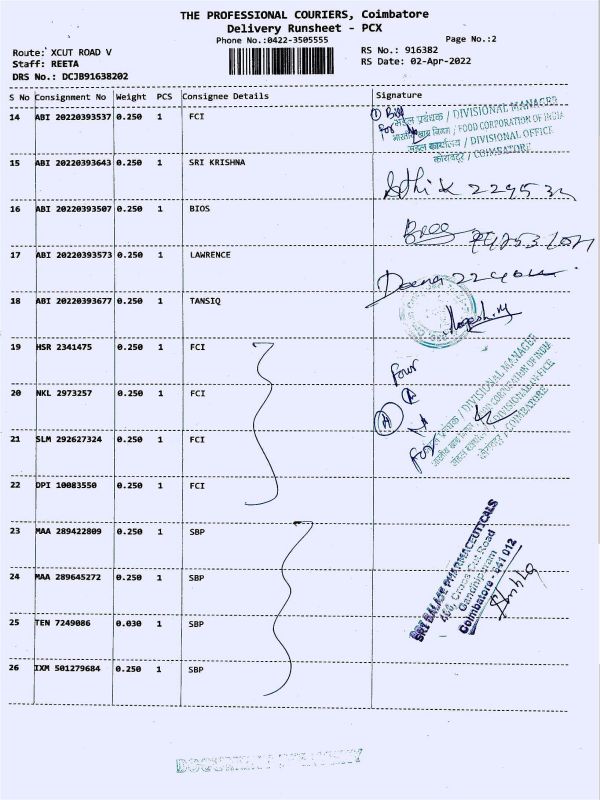 THE PROFESSIONAL COURIERS, Coimbatore
Delivery Runsheet - PCX
Phone No.:0422-3505555
Page No.:2
Route: XCUT ROAD V
RS No.: 916382
Staff: REETA
RS Date: 02-Apr-2022
DRS No.: DCJB91638202
S No Consignment No Weight PCS Consignee Details Signature
14 ABI 20220393537 0.250 1 FCI
① Bill
For
मंडल प्रबंधक / DIVISIONAL MANAGER
भारतीय खाद्य निगम / FOOD CORPORATION OF INDIA
मंडल कार्यालय / DIVISIONAL OFFICE
कोयंबटूर / COIMBATORE
15 ABI 20220393643 0.250 1 SRI KRISHNA
16 ABI 20220393507 0.250 1 BIOS
17 ABI 20220393573 0.250 1 LAWRENCE
18 ABI 20220393677 0.250 1 TANSIQ
19 HSR 2341475 0.250 1 FCI
20 NKL 2973257 0.250 1 FCI
21 SLM 292627324 0.250 1 FCI
22 DPI 10083550 0.250 1 FCI
Four
For
मंडल प्रबंधक / DIVISIONAL MANAGER
भारतीय खाद्य निगम / FOOD CORPORATION OF INDIA
मंडल कार्यालय / DIVISIONAL OFFICE
कोयंबटूर / COIMBATORE
23 MAA 289422809 0.250 1 SBP
24 MAA 289645272 0.250 1 SBP
25 TEN 7249086 0.030 1 SBP
26 IXM 501279684 0.250 1 SBP
SRI BALAJI PHARMACEUTICALS
Cross Cut Road
Gandhipuram
Coimbatore - 641 012